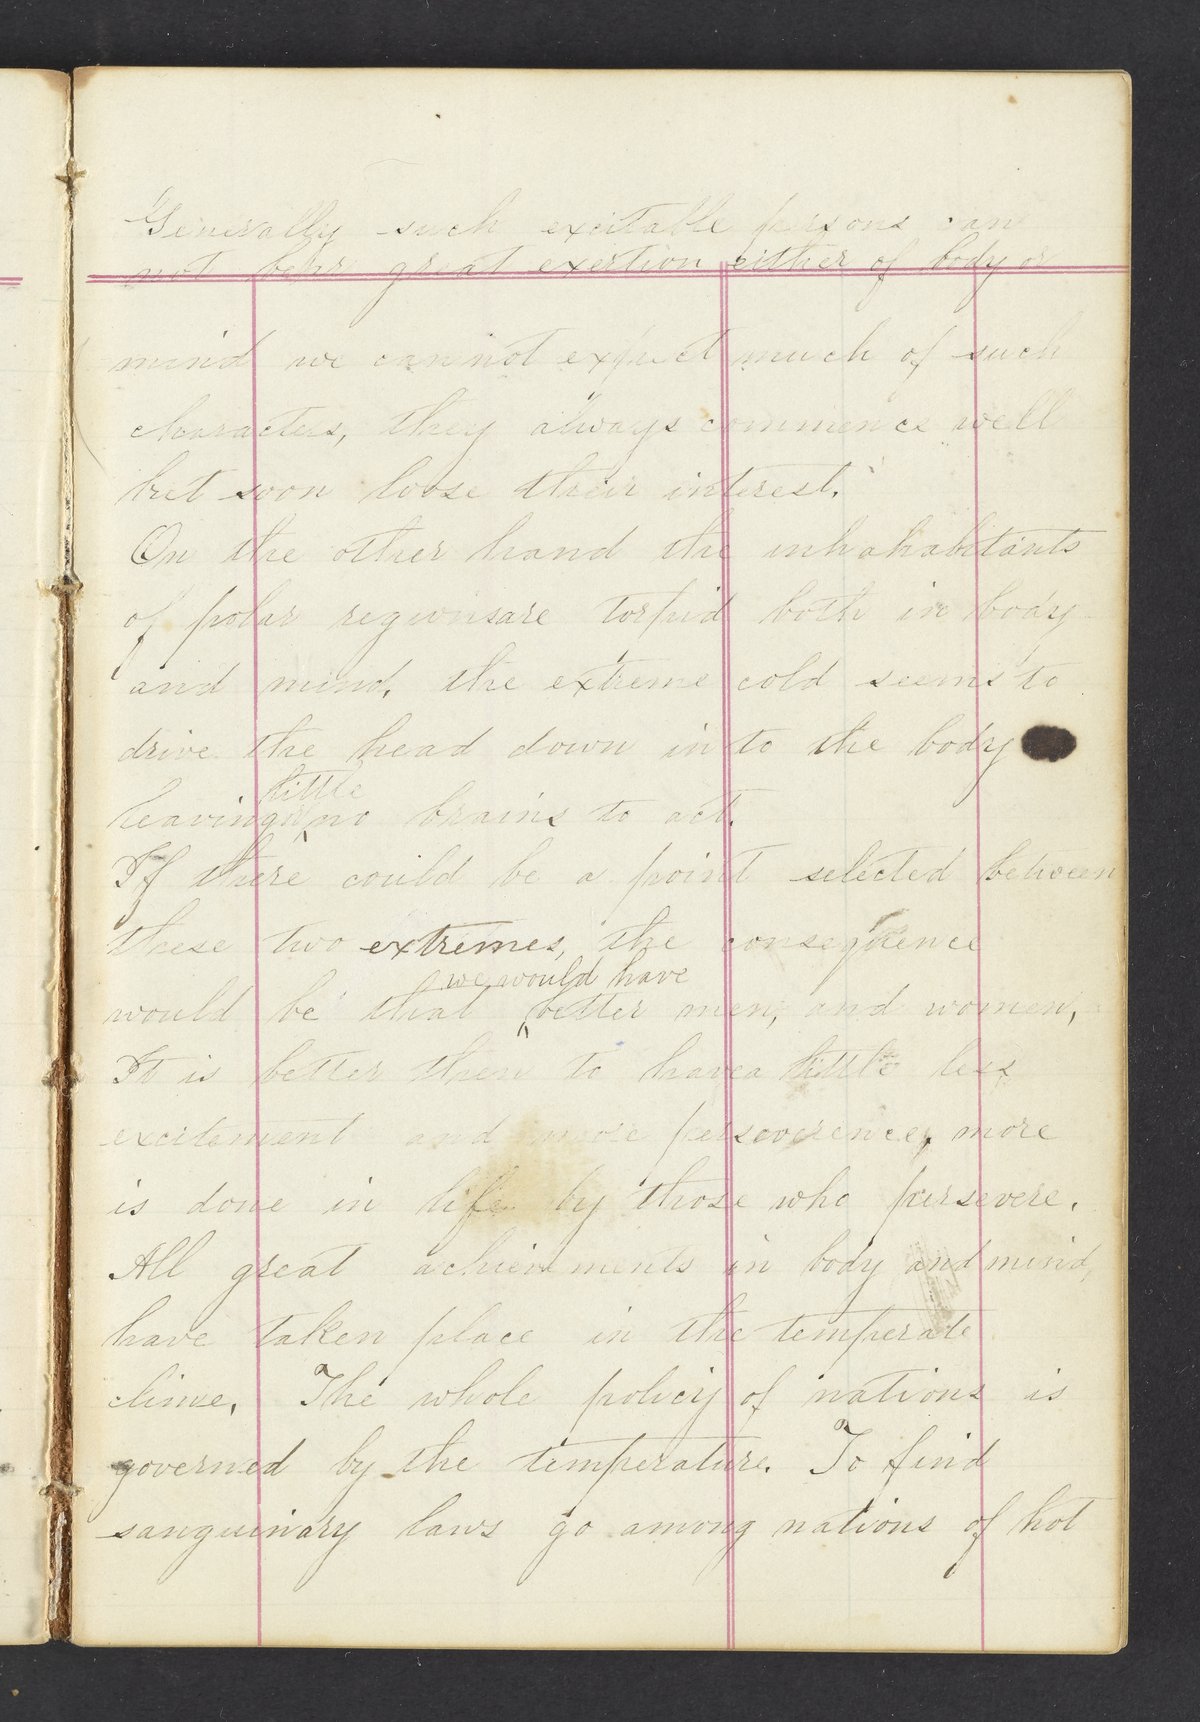 Generally such excitable persons can
not bear great exertion either of body or
mind we can not expect much of such
characters, they always commence well
but soon loose their interest.
On the other hand the inhahabitants
of polar regions are torpid both in body
and mind. the extreme cold seems to
drive the head down in to the body
little
leaving or no brains to act.
If there could be a point selected between
these two extremes, the consequence
we would have
would be that better men, and women,
It is better then to have a little less
excitement and more perseverence, more
is done in life by those who persevere.
All great achievments in body and mind,
have taken place in the temperate
clime. The whole policy of nations is
governed by the temperature. To find
sanguinary laws go among nations of hot